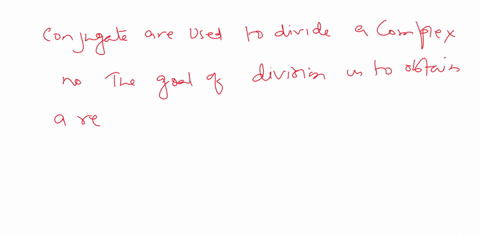 Conjugate are used to divide a Complex
no The goal of division us to obtain
a re